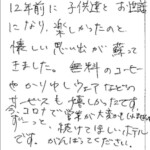 12年前に子供達とお世話
になり、楽しかったのと
懐しい思い出が蘇って
きました。無料のコーヒー
やかりゆしウェアなどの
サービスも懐しかったです。
コロナで営業が大変かもしれませんが
ずーっと、続けてほしいホテル
です。がんばってください。